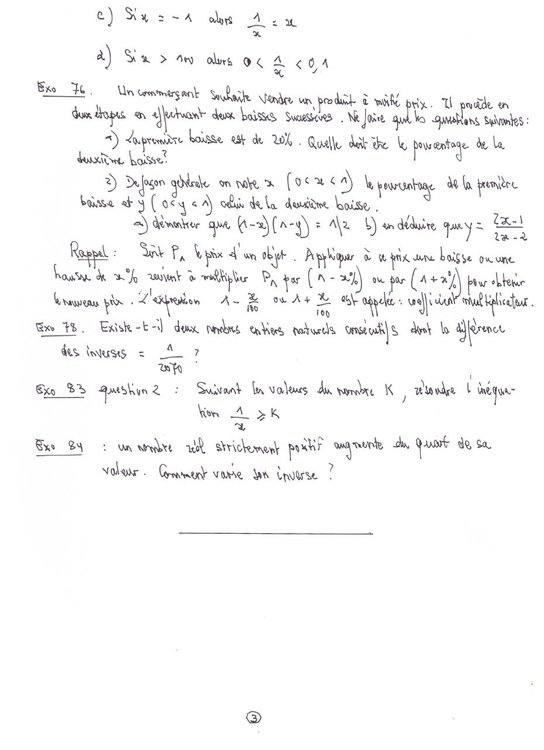 c) Si x = -1 alors 1/x = x
d) Si x > 10 alors 0 < 1/x < 0,1
Exo 76. Un commerçant souhaite vendre un produit à moitié prix. Il procède en
deux étapes en effectuant deux baisses successives. Ne faire que les questions suivantes :
1) La première baisse est de 20%. Quelle doit être le pourcentage de la
deuxième baisse?
2) De façon générale on note x (0<x<1) le pourcentage de la première
baisse et y (0<y<1) celui de la deuxième baisse.
a) démontrer que (1-x)(1-y) = 1/2 b) en déduire que y = 2x-1/2x-2
Rappel : Soit P1 le prix d'un objet. Appliquer à ce prix une baisse ou une
hausse de x% revient à multiplier P1 par (1-x%) ou par (1+x%) pour obtenir
le nouveau prix. L'expression 1 - x/100 ou 1 + x/100 est appelée : coefficient multiplicateur.
Exo 78. Existe-t-il deux nombres entiers naturels consécutifs dont la différence
des inverses = 1/2070 ?
Exo 83 question 2 : Suivant les valeurs du nombre K, résoudre l'inéqua-
tion 1/x ⩾ K
Exo 84 : un nombre réel strictement positif augmente du quart de sa
valeur. Comment varie son inverse ?
3